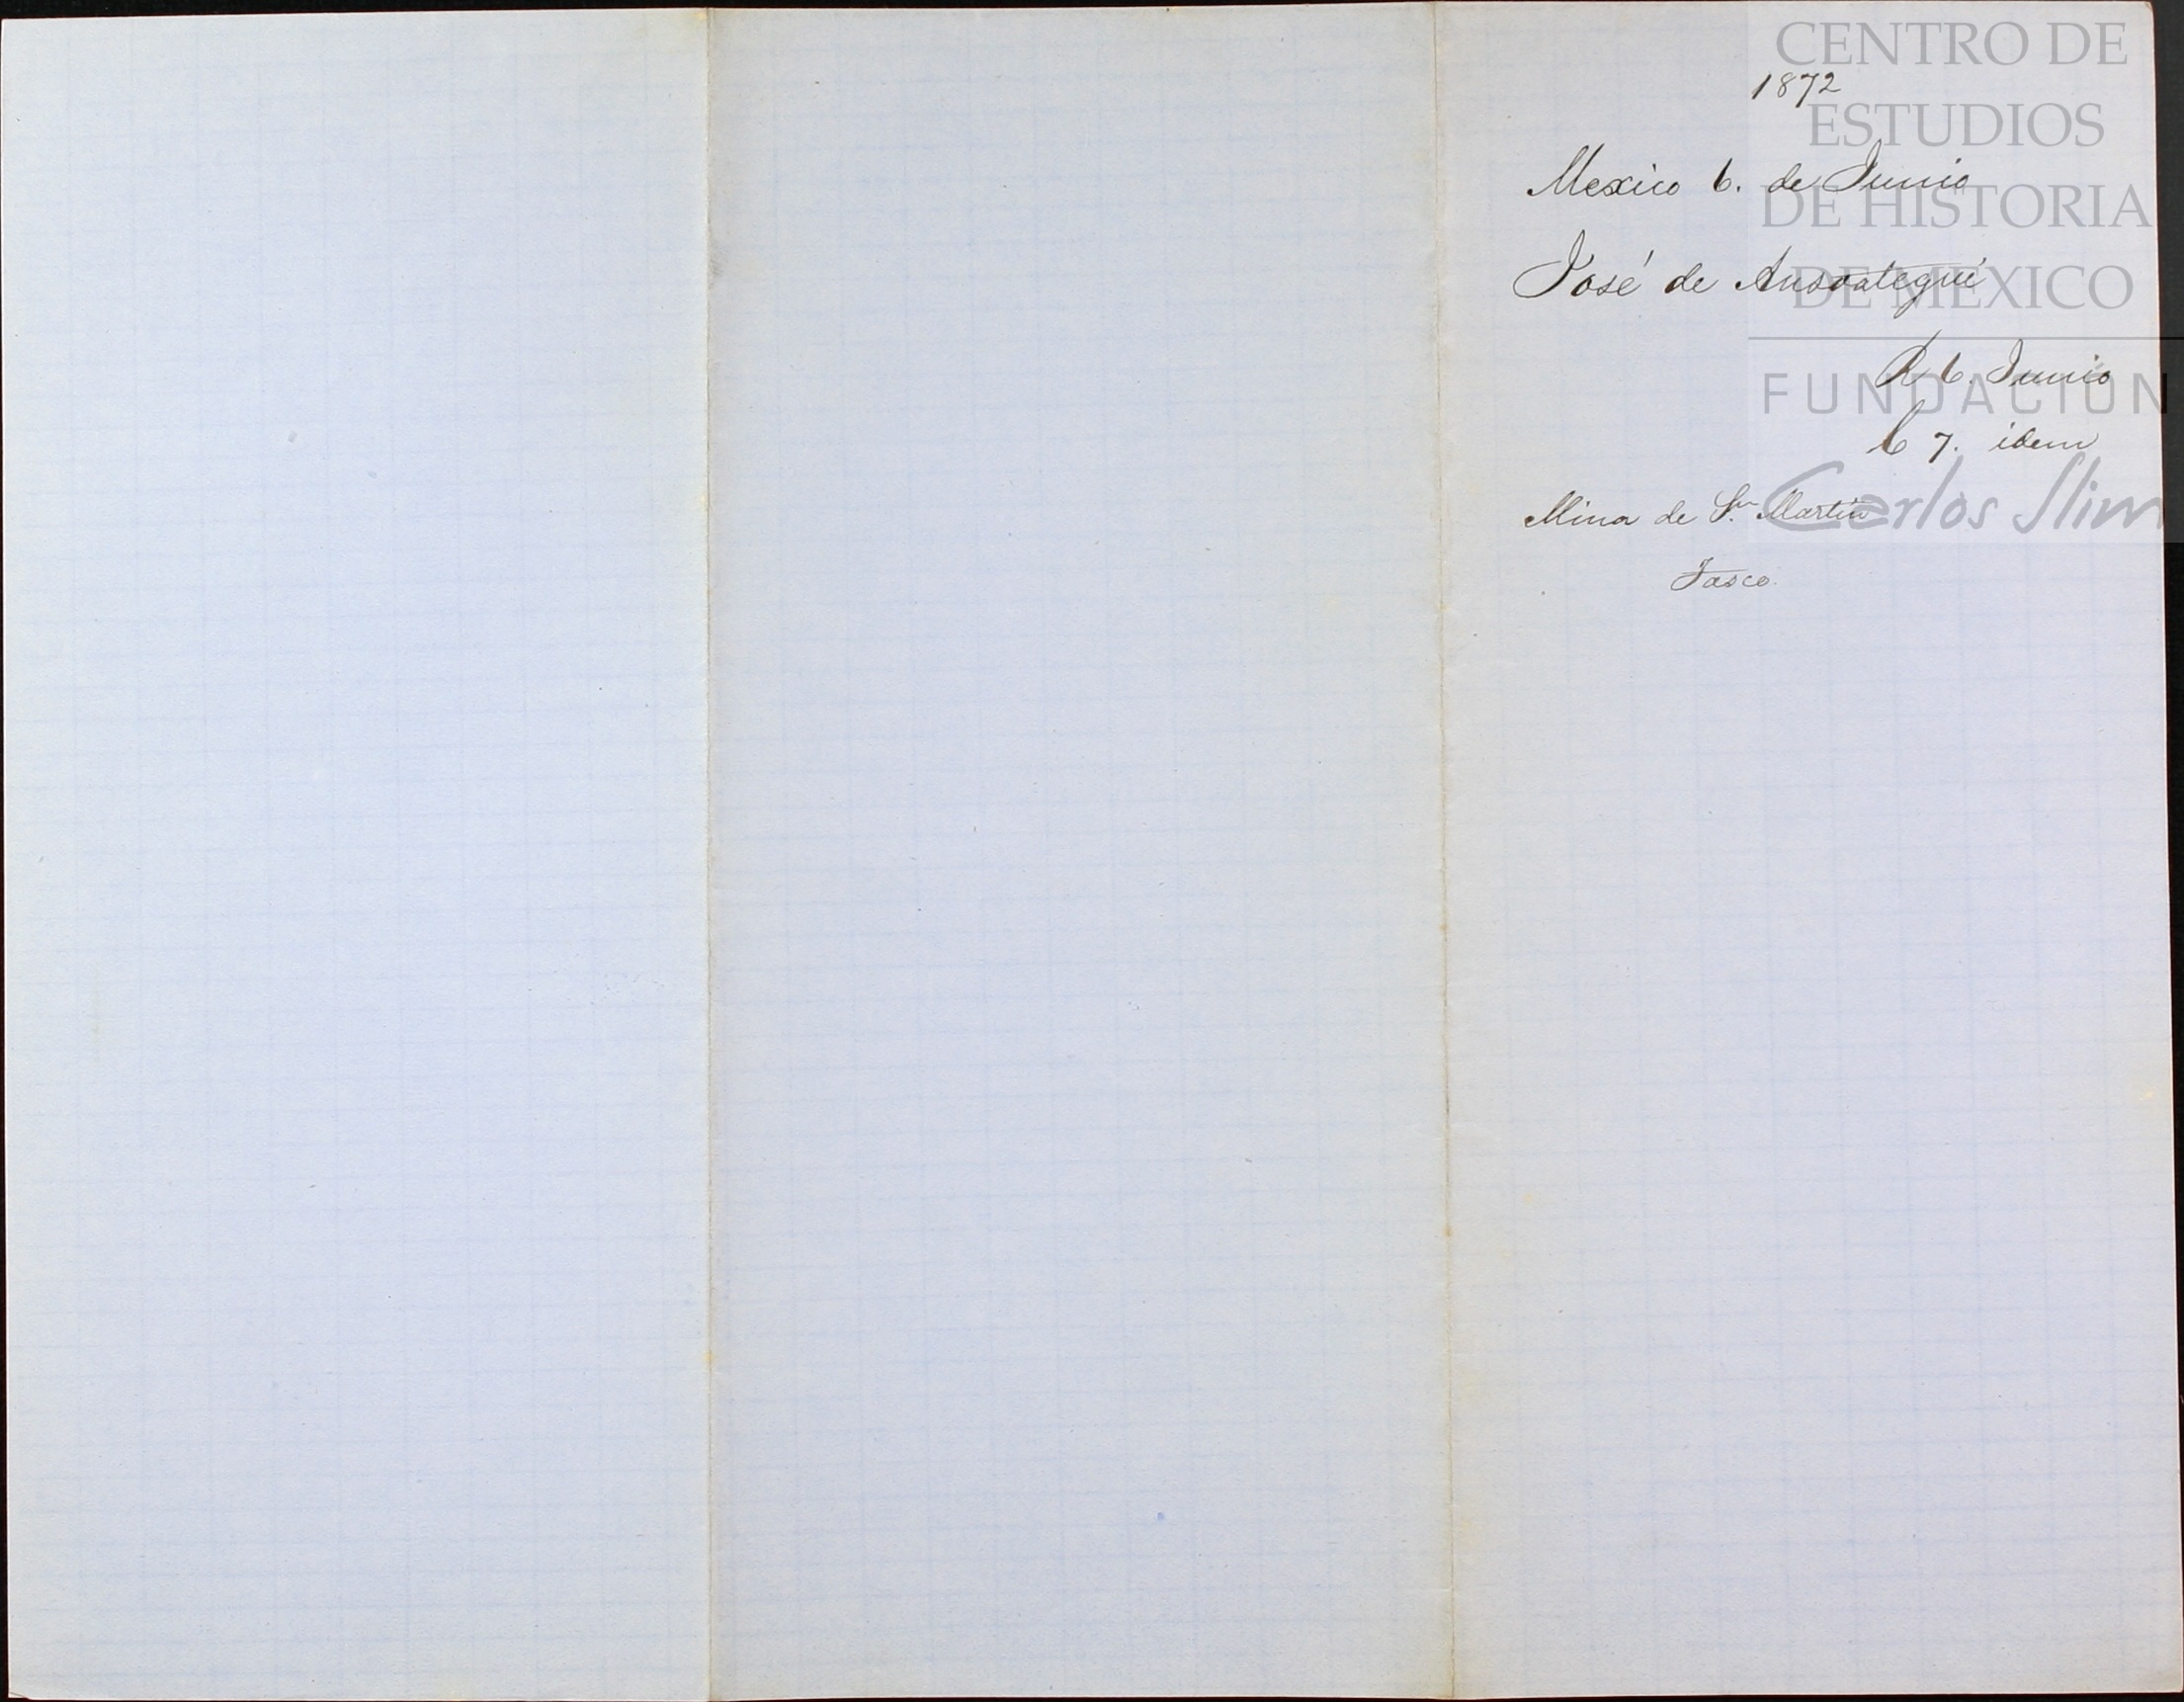 1872
Mexico 6. de Junio
José de Ansoategui
R 6. Junio
C 7. idem
Mina de Sn. Martin
Tasco.
CENTRO DE
ESTUDIOS
DE HISTORIA
DE MÉXICO
FUNDACIÓN
Carlos Slim